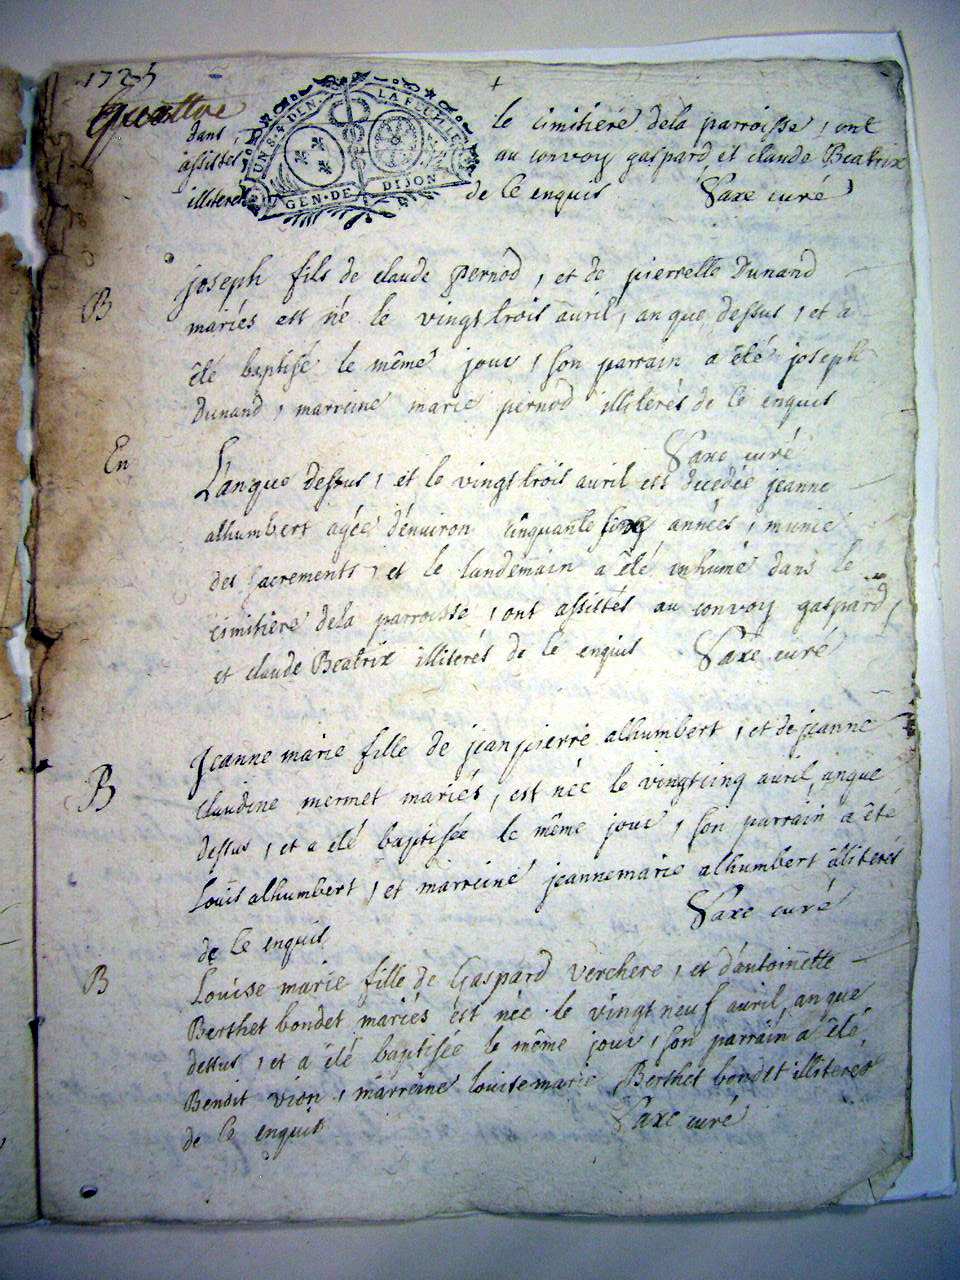 1725
quattre
UN SOL DEN. LA FEUILLE
GEN·DE DIJON
dans le cimitiére dela parroisse, ont
assistés au convoy gaspard et claude Beatrix
illiterés de ce enquis Saxe curé
B
joseph fils de claude pernod, et de pierrette Dunand
mariés est né le vingt trois avril, an que dessus, et a
êté baptisé le même jour, son parrain a êté joseph
Dunand, marreine marie pernod illiterés de ce enquis
Saxe curé
En
L'anque dessus, et le vingt trois avril est decedée jeanne
alhumbert agée d'environ cinquante années, munie
des sacrements, et le landemain a êté inhumé dans le
cimitiere dela parroisse, ont assistés au convoy gaspard
et claude Beatrix illiterés de ce enquis Saxe curé
B
Jeanne marie fille de jean pierre alhumbert, et de jeanne
claudine mermet mariés, est née le vingt cinq avril, anque
dessus, et a êté baptisée le même jour, son parrain a êté
Louis alhumbert, et marreine jeanne marie alhumbert illiterés
de ce enquis Saxe curé
B
Louise marie fille de Gaspard Verchere, et d'antoinette
Berthet bondet mariés est née le vingt neuf avril, an que
dessus, et a êté baptisée le même jour, son parrain a êté
Bendit vion, marreine louise marie Berthet bondet illiteres
de ce enquis Saxe curé